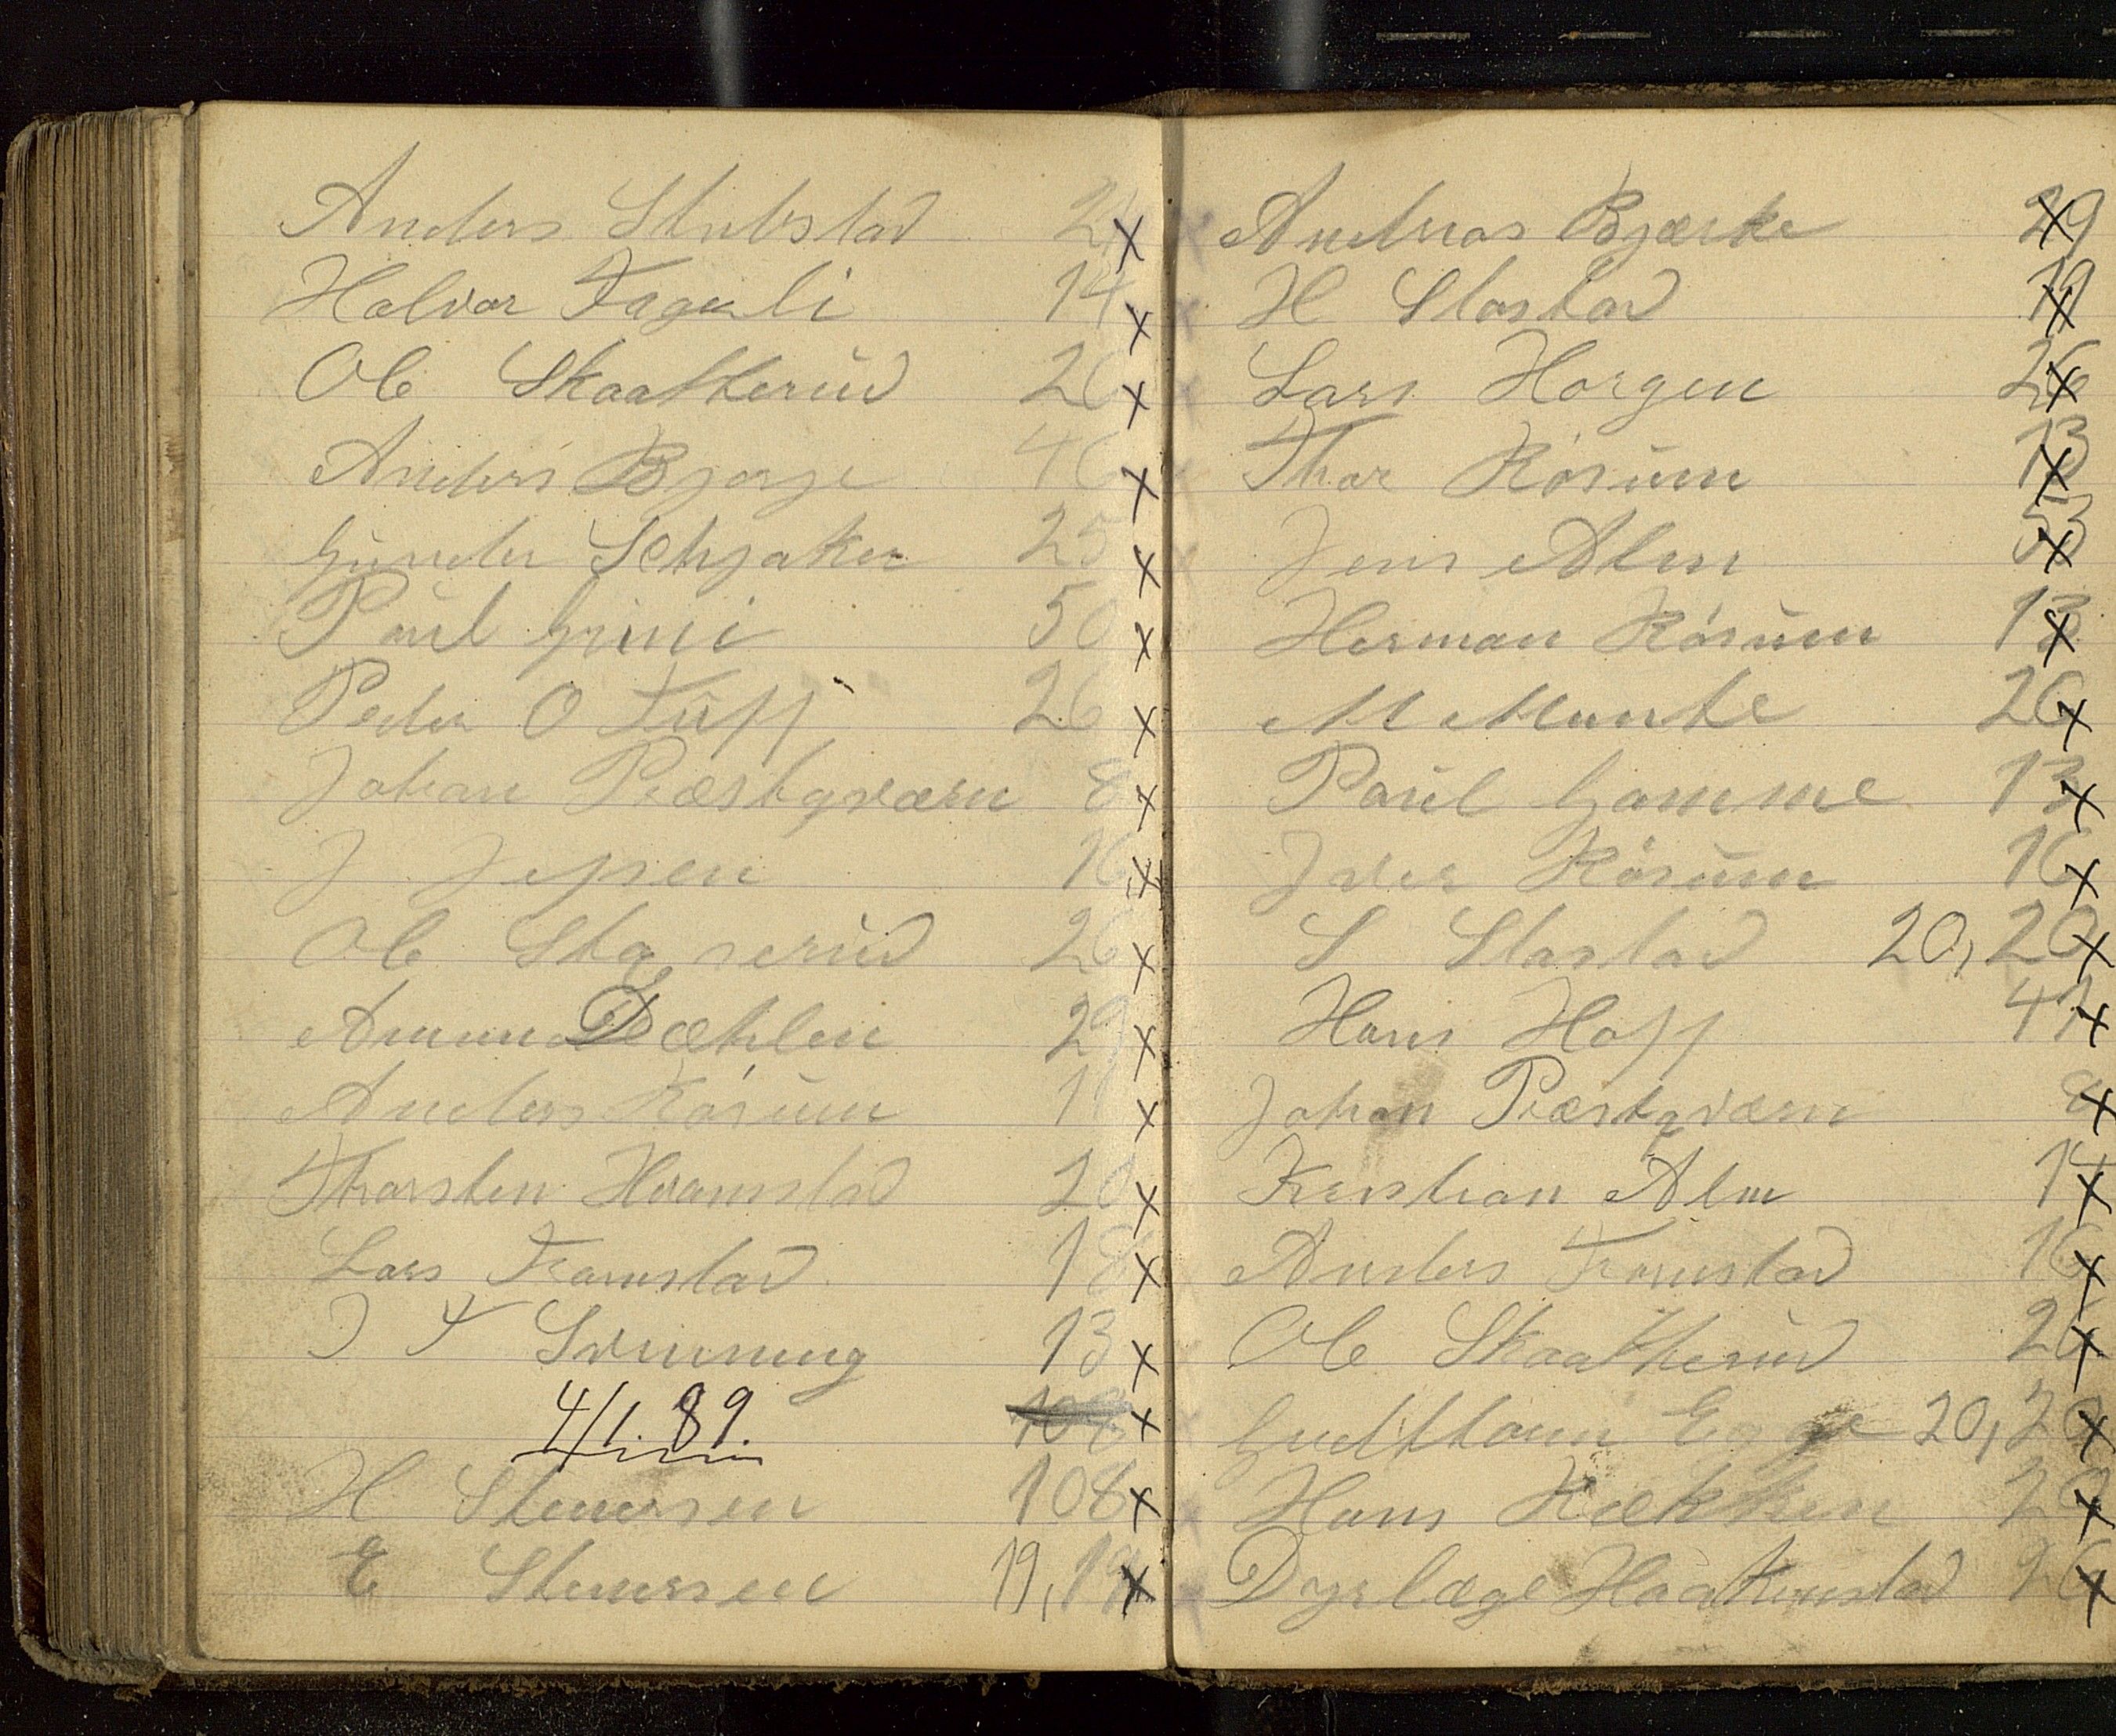 Anders Stubstad 2 x
Halvor Fagerli 14 x
Ole Skaatterud 26 x
Anders Bjørge 46 x
Gunder Schjaker 25 x
Paul Grini 50 x
Peder O Tuff 26 x
Johan Præstqværn 8 x
J Jepsen 16 x
Ole Sta serud 26 x
Amund Dæhlen 29 x
Anders Rósum 11 x
Thorsten Hvamstad 20 x
Lars Framstad 18 x
J T Svinning 13 x
4/1. 89. 108 x
H Stenersen 108 x
E Stenersen 19, 19 x
Andreas Bjærke 29 x
H Slastad 19 x
Lars Horgen 26 x
Thor Rósum 13 x
Jens Alm 53 x
Herman Rósum 13 x
M Munke 26 x
Paul Gamme 13 x
Iver Rósum 16 x
S Slastad 20, 20 x
Hans Hoff 41 x
Johan Præstqværn 8 x
Kristian Alm 14 x
Anders Framstad 16 x
Ole Skaatterud 26 x
Gudttorm Egge 20, 20 x
Hans Kækken 20 x
Dyrlæge Haakenstad 26 x